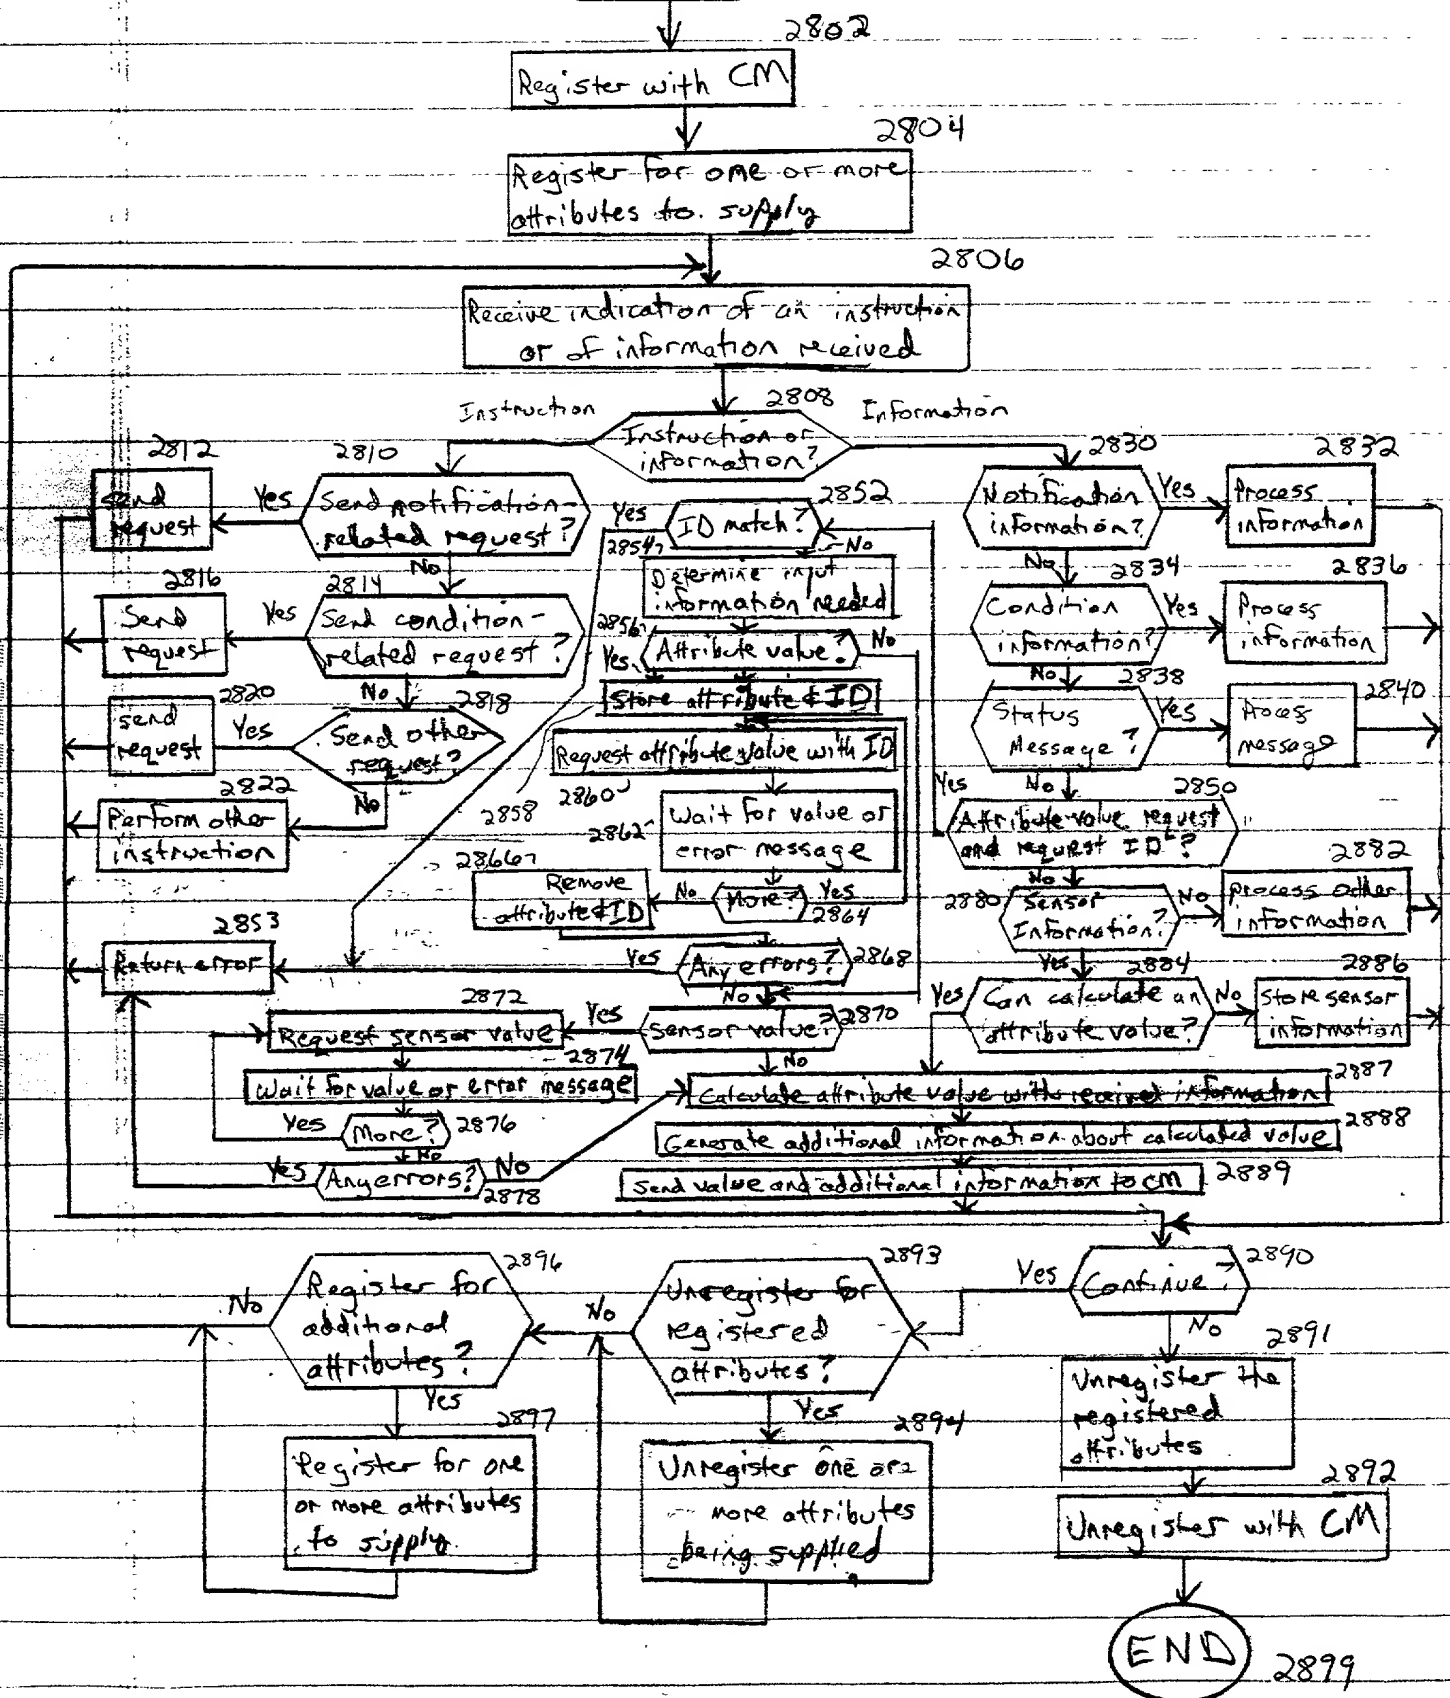 2802
Register with CM
2804
Register for one or more
attributes to supply
2806
Receive indication of an instruction
or of information received
2808
Instruction
Information
Instruction or
information?
2812
2810
Send
request
Yes
Send notification-
related request?
No
2816
2814
Send
request
Yes
Send condition-
related request?
No
2820
2818
Send
request
Yes
Send other
request?
No
2822
Perform other
instruction
2853
Return error
2852
Yes
ID match?
No
2854
Determine input
information needed
2856
Attribute value?
No
Yes
Store attribute & ID
2858
Request attribute value with ID
2860
Wait for value or
error message
2862
2866
Remove
attribute & ID
No
More?
Yes
2864
Yes
Any errors?
2868
No
2872
Request sensor value
Yes
Sensor value?
2870
No
2874
Wait for value or error message
Yes
More?
2876
No
Yes
Any errors?
No
2878
2830
2832
Notification
information?
Yes
Process
information
No
2834
2836
Condition
information?
Yes
Process
information
No
2838
2840
Status
Message?
Yes
Process
message
No
2850
Yes
Attribute value request
and request ID?
No
2880
2882
Sensor
Information?
No
Process other
information
Yes
2884
2886
Yes
Can calculate an
attribute value?
No
Store sensor
information
2887
Calculate attribute value with received information
2888
Generate additional information about calculated value
2889
Send value and additional information to CM
2890
Yes
Continue?
No
2891
Unregister the
registered
attributes
2892
Unregister with CM
END
2899
2893
No
Unregister for
registered
attributes?
Yes
2894
Unregister one or
more attributes
being supplied
2896
No
Register for
additional
attributes?
Yes
2897
Register for one
or more attributes
to supply